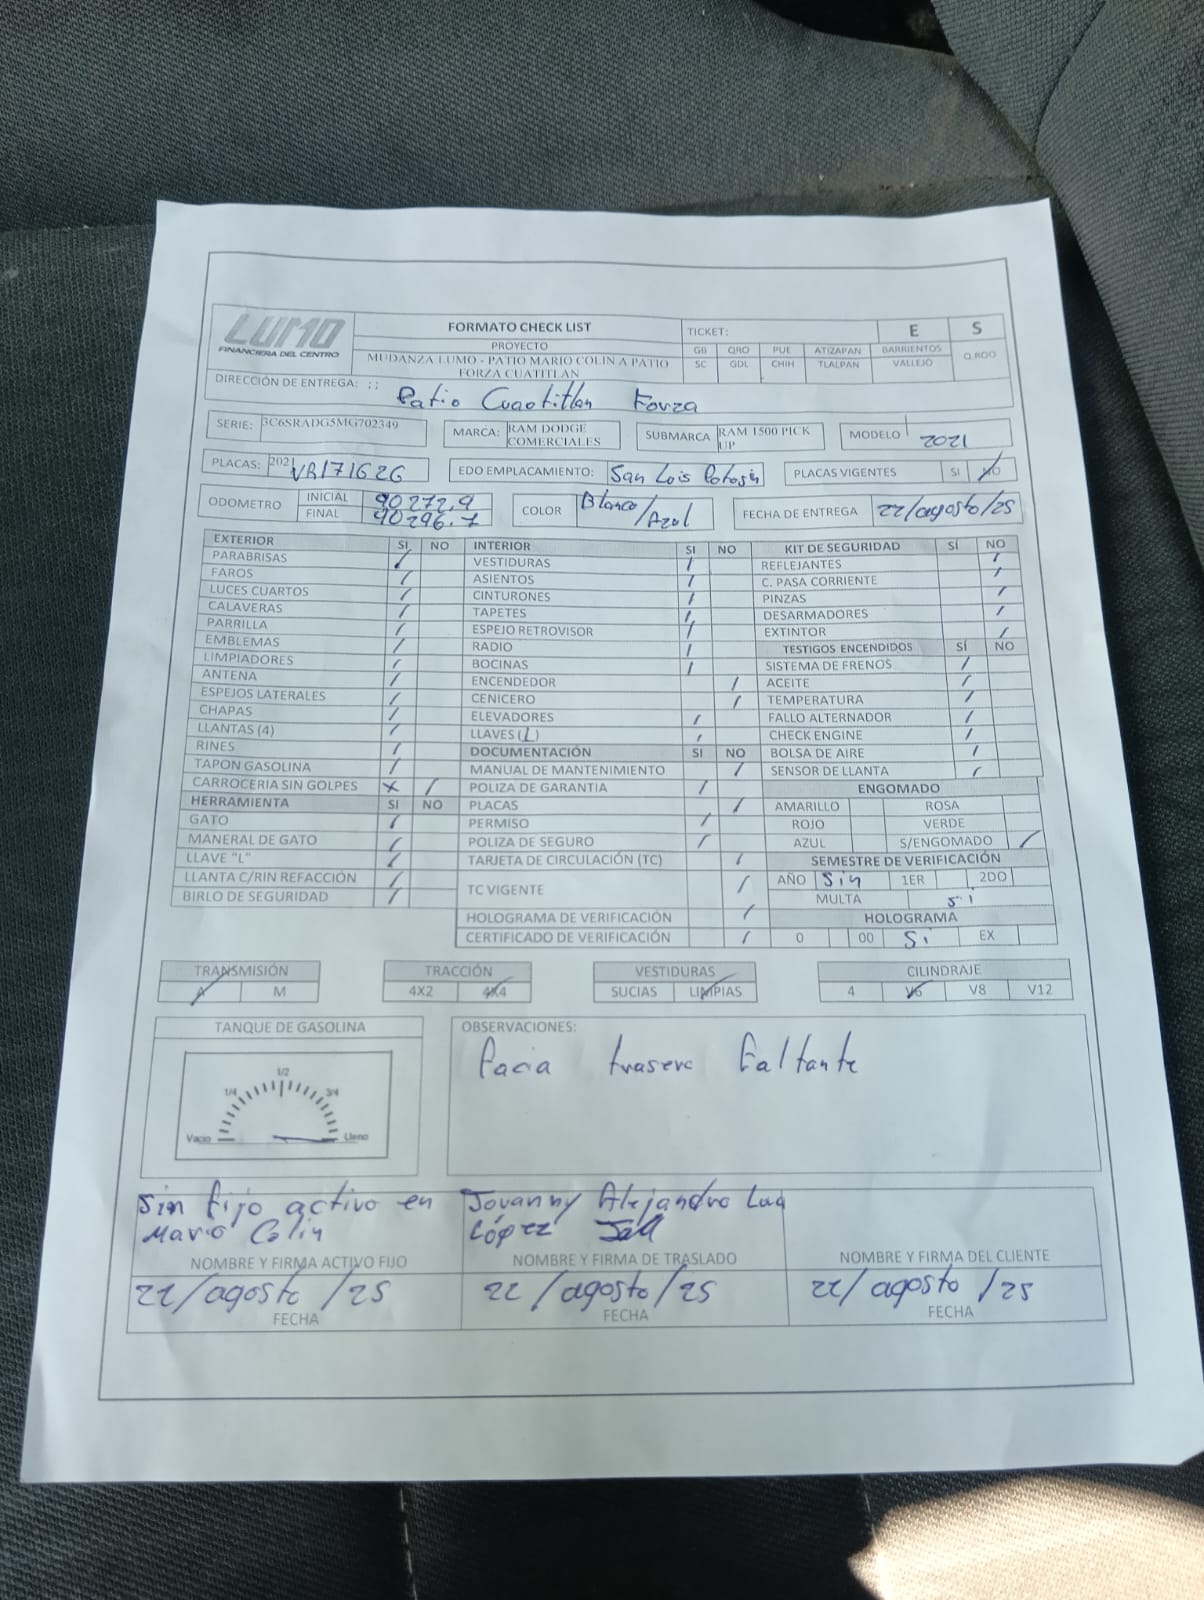 LUMO
FINANCIERA DEL CENTRO
FORMATO CHECK LIST
PROYECTO
MUDANZA LUMO - PATIO MARIO COLIN A PATIO
FORZA CUATITLAN
TICKET: E S
GB QRO PUE ATIZAPAN BARRIENTOS Q.ROO
SC GDL CHIH TLALPAN VALLEJO
DIRECCIÓN DE ENTREGA: : : Patio Cuatitlan Forza
SERIE: 3C6SRADG5MG702349 MARCA: RAM DODGE COMERCIALES SUBMARCA RAM 1500 PICK UP MODELO 2021
PLACAS: 202 VR171626 EDO EMPLACAMIENTO: San Luis Potosi PLACAS VIGENTES SI NO
ODOMETRO INICIAL 90272.9 COLOR Blanco/Azul FECHA DE ENTREGA 22/agosto/25
FINAL 90296.7
EXTERIOR SI NO INTERIOR SI NO KIT DE SEGURIDAD SÍ NO
PARABRISAS VESTIDURAS REFLEJANTES
FAROS ASIENTOS C. PASA CORRIENTE
LUCES CUARTOS CINTURONES PINZAS
CALAVERAS TAPETES DESARMADORES
PARRILLA ESPEJO RETROVISOR EXTINTOR
EMBLEMAS RADIO TESTIGOS ENCENDIDOS SÍ NO
LIMPIADORES BOCINAS SISTEMA DE FRENOS
ANTENA ENCENDEDOR ACEITE
ESPEJOS LATERALES CENICERO TEMPERATURA
CHAPAS ELEVADORES FALLO ALTERNADOR
LLANTAS (4) LLAVES ( ) CHECK ENGINE
RINES DOCUMENTACIÓN SI NO BOLSA DE AIRE
TAPON GASOLINA MANUAL DE MANTENIMIENTO SENSOR DE LLANTA
CARROCERIA SIN GOLPES x POLIZA DE GARANTIA ENGOMADO
HERRAMIENTA SI NO PLACAS AMARILLO ROSA
GATO PERMISO ROJO VERDE
MANERAL DE GATO POLIZA DE SEGURO AZUL S/ENGOMADO
LLAVE "L" TARJETA DE CIRCULACIÓN (TC) SEMESTRE DE VERIFICACIÓN
LLANTA C/RIN REFACCIÓN TC VIGENTE AÑO Sin 1ER 2DO
BIRLO DE SEGURIDAD MULTA si
HOLOGRAMA DE VERIFICACIÓN HOLOGRAMA
CERTIFICADO DE VERIFICACIÓN 0 00 Si EX
TRANSMISIÓN TRACCIÓN VESTIDURAS CILINDRAJE
A M 4X2 4X4 SUCIAS LIMPIAS 4 V6 V8 V12
TANQUE DE GASOLINA
Vacio 1/4 1/2 3/4 Lleno
OBSERVACIONES:
Facia trasera faltante
Sin fijo activo en
Mario Colin
NOMBRE Y FIRMA ACTIVO FIJO
22/agosto/25
FECHA
Jovanny Alejandro
López
NOMBRE Y FIRMA DE TRASLADO
22/agosto/25
FECHA
NOMBRE Y FIRMA DEL CLIENTE
22/agosto/25
FECHA